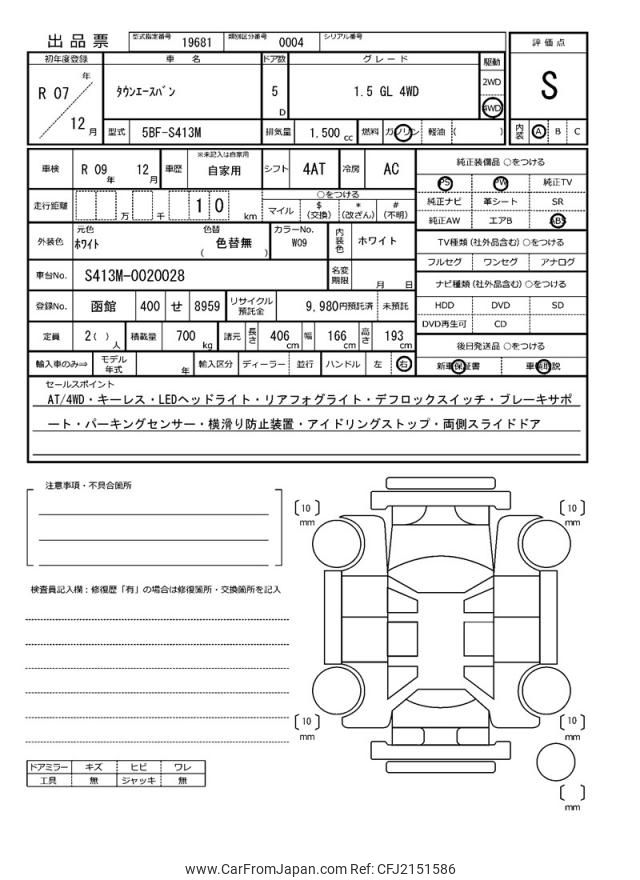 出品票 型式指定番号 19681 類別区分番号 0004 シリアル番号
評価点
S
初年度登録 車名 ドア数 グレード 駆動
R 07 年 12 月 タウンエースバン 5 D 1.5 GL 4WD 2WD 4WD
型式 5BF-S413M 排気量 1.500 cc 燃料 ガソリン 軽油 ( )
内装 A B C
車検 R 09 年 12 月 車歴 ※未記入は自家用 自家用 シフト 4AT 冷房 AC
走行距離 万 千 1 0 km ○をつける
マイル $ (交換) * (改ざん) # (不明)
外装色 元色 ホワイト 色替 色替無 ( ) カラーNo. W09 内装色 ホワイト
車台No. S413M-0020028 名変期限 月 日
登録No. 函館 400 せ 8959 リサイクル預託金 9,980円預託済 未預託
定員 2( ) 人 積載量 700 kg 諸元 長さ 406 cm 幅 166 cm 高さ 193 cm
輸入車のみ⇒ モデル年式 年 輸入区分 ディーラー 並行 ハンドル 左 右
純正装備品 ○をつける
PS PW 純正TV
純正ナビ 革シート SR
純正AW エアB ABS
TV種類 (社外品含む) ○をつける
フルセグ ワンセグ アナログ
ナビ種類 (社外品含む) ○をつける
HDD DVD SD
DVD再生可 CD
後日発送品 ○をつける
新車保証書 車輌取説
セールスポイント
AT/4WD・キーレス・LEDヘッドライト・リアフォグライト・デフロックスイッチ・ブレーキサポ
ート・パーキングセンサー・横滑り防止装置・アイドリングストップ・両側スライドドア
注意事項・不具合箇所
検査員記入欄：修復歴「有」の場合は修復箇所・交換箇所を記入
ドアミラー キズ ヒビ ワレ
工具 無 ジャッキ 無
[10] mm
[10] mm
[10] mm
[10] mm
[ ] mm
www.CarFromJapan.com Ref: CFJ2151586